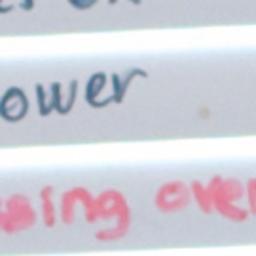 ower
sing over